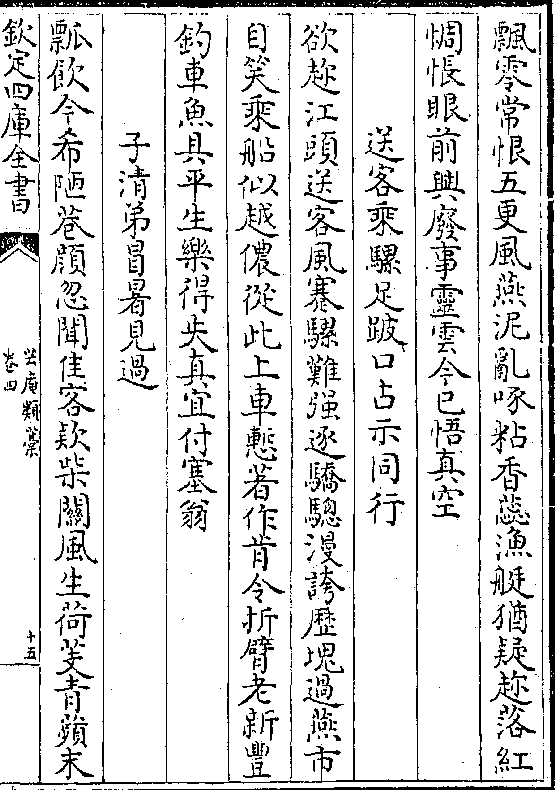 飄零常恨五更風燕泥亂啄粘香蕊漁艇猶疑趂落紅
惆悵眼前興廢事靈雲今已悟真空
送客乘騾足跛口占示同行
欲趂江頭送客風蹇騾難强逐驕驄漫誇歷塊過燕市
自笑乘船似越儂從此上車慙著作肯令折臂老新豐
釣車魚具平生樂得失真宜付塞翁
子清弟冒暑見過
瓢飲今希陋巷顔忽聞佳客欵柴關風生荷芰青蘋末
欽定四庫全書
坐庵類藁
卷四
十五